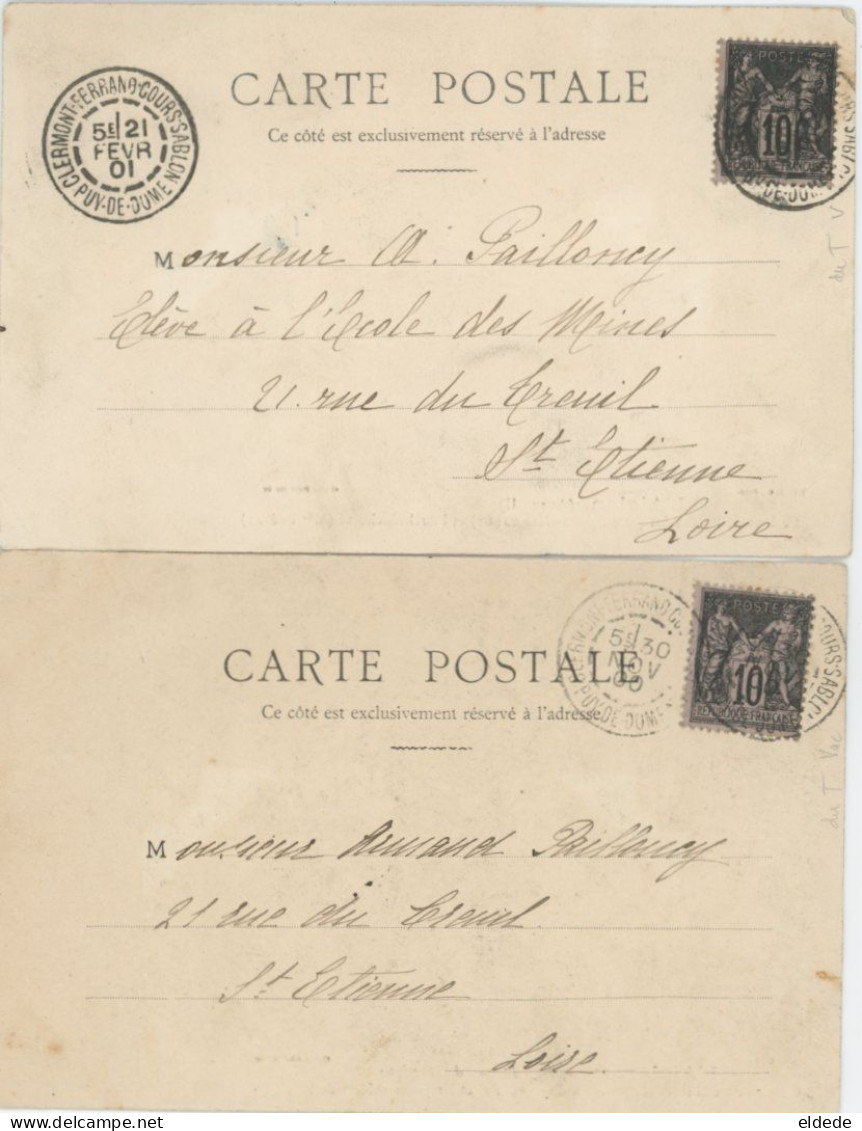 CARTE POSTALE
Ce côté est exclusivement réservé à l'adresse
CLERMONT-FERRAND-COURS-SABLON
5E 21
FEVR
01
PUY-DE-DOME
POSTE
10
REPUBLIQUE FRANÇAISE
Monsieur A. Pailloncy
Elève à l'Ecole des Mines
21 rue du Treuil
St. Etienne
Loire
du T V
CARTE POSTALE
Ce côté est exclusivement réservé à l'adresse
CLERMONT-FERRAND-CO
5E 30
NOV
00
PUY-DE-DOME
POSTE
10
REPUBLIQUE FRANÇAISE
COURS-SABLO
Monsieur Armand Pailloncy
21 rue du Treuil
St. Etienne
Loire
du T Vac
eldede